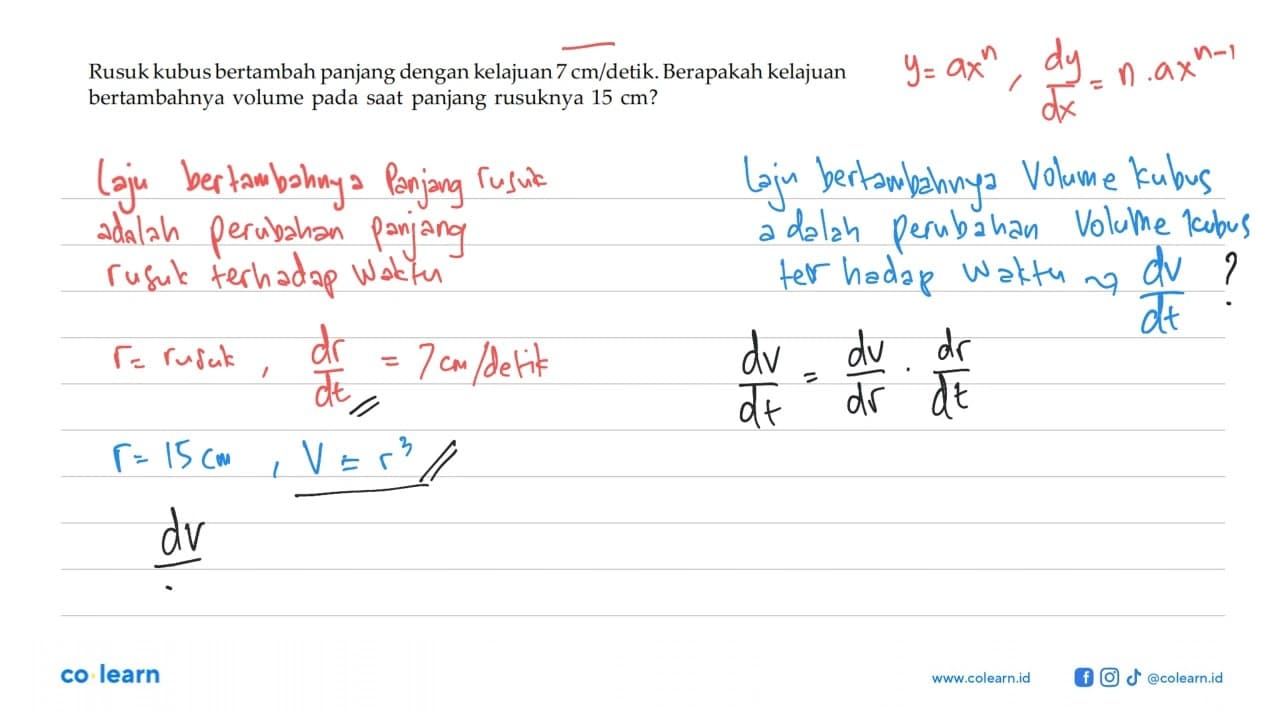 Rusuk kubus bertambah panjang dengan kelajuan 7 cm/detik. Berapakah kelajuan
bertambahnya volume pada saat panjang rusuknya 15 cm?
y = ax^n , dy/dx = n . ax^(n-1)
Laju bertambahnya Panjang rusuk
adalah perubahan panjang
rusuk terhadap waktu
r = rusuk , dr/dt = 7 cm/detik
r = 15 cm , V = r³
dv
Laju bertambahnya Volume kubus
adalah perubahan Volume kubus
terhadap waktu → dv/dt ?
dv/dt = dv/dr . dr/dt
co learn
www.colearn.id
@colearn.id